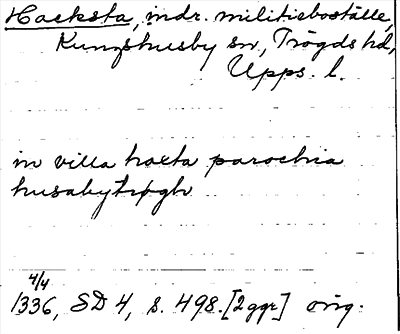 Hacksta, indr. militieboställe,
Kungshusby sn, Trögds hd,
Upps. l.
in villa haxta parochia
husabythrøgh
4/4
1336, SD 4, s. 498. [2 ggr] orig.